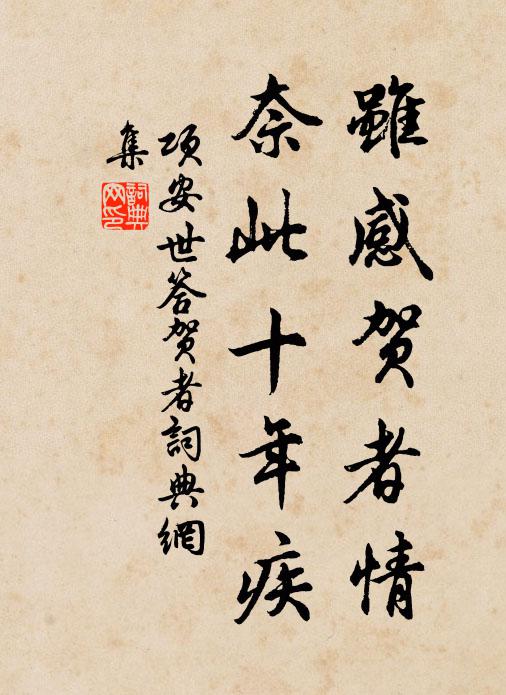 雖感贺者情
奈此十年疾
项安世答贺者詞典網
集
詞典
网印